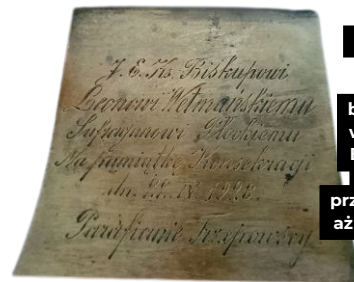 J. E. Ks. Biskupowi
Leonowi Wetmańskiemu
Sufraganowi Płockiemu
Na pamiątkę Konsekracji
dn. IV. 1928.
Parafianie
prz
aż